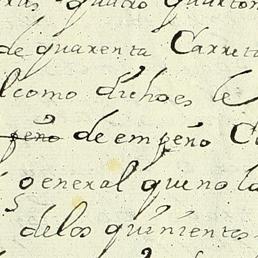 quatro quarton
de quarenta Carreta
lcomo dichoes le
peño de empeño C
general que no la
delos quinientos